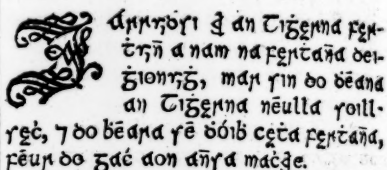 Iarruiġsi ar an Tiġerna fer-
ṫuiñ a nam na ferṫaña dei-
ġionuiġ, mar sin do ḋéana
an Tiġerna néulla soill-
seċ, ⁊ do ḃéara sé ḋóiḃ ceṫa ferṫaña,
féur do gaċ aon añsa maċaire.